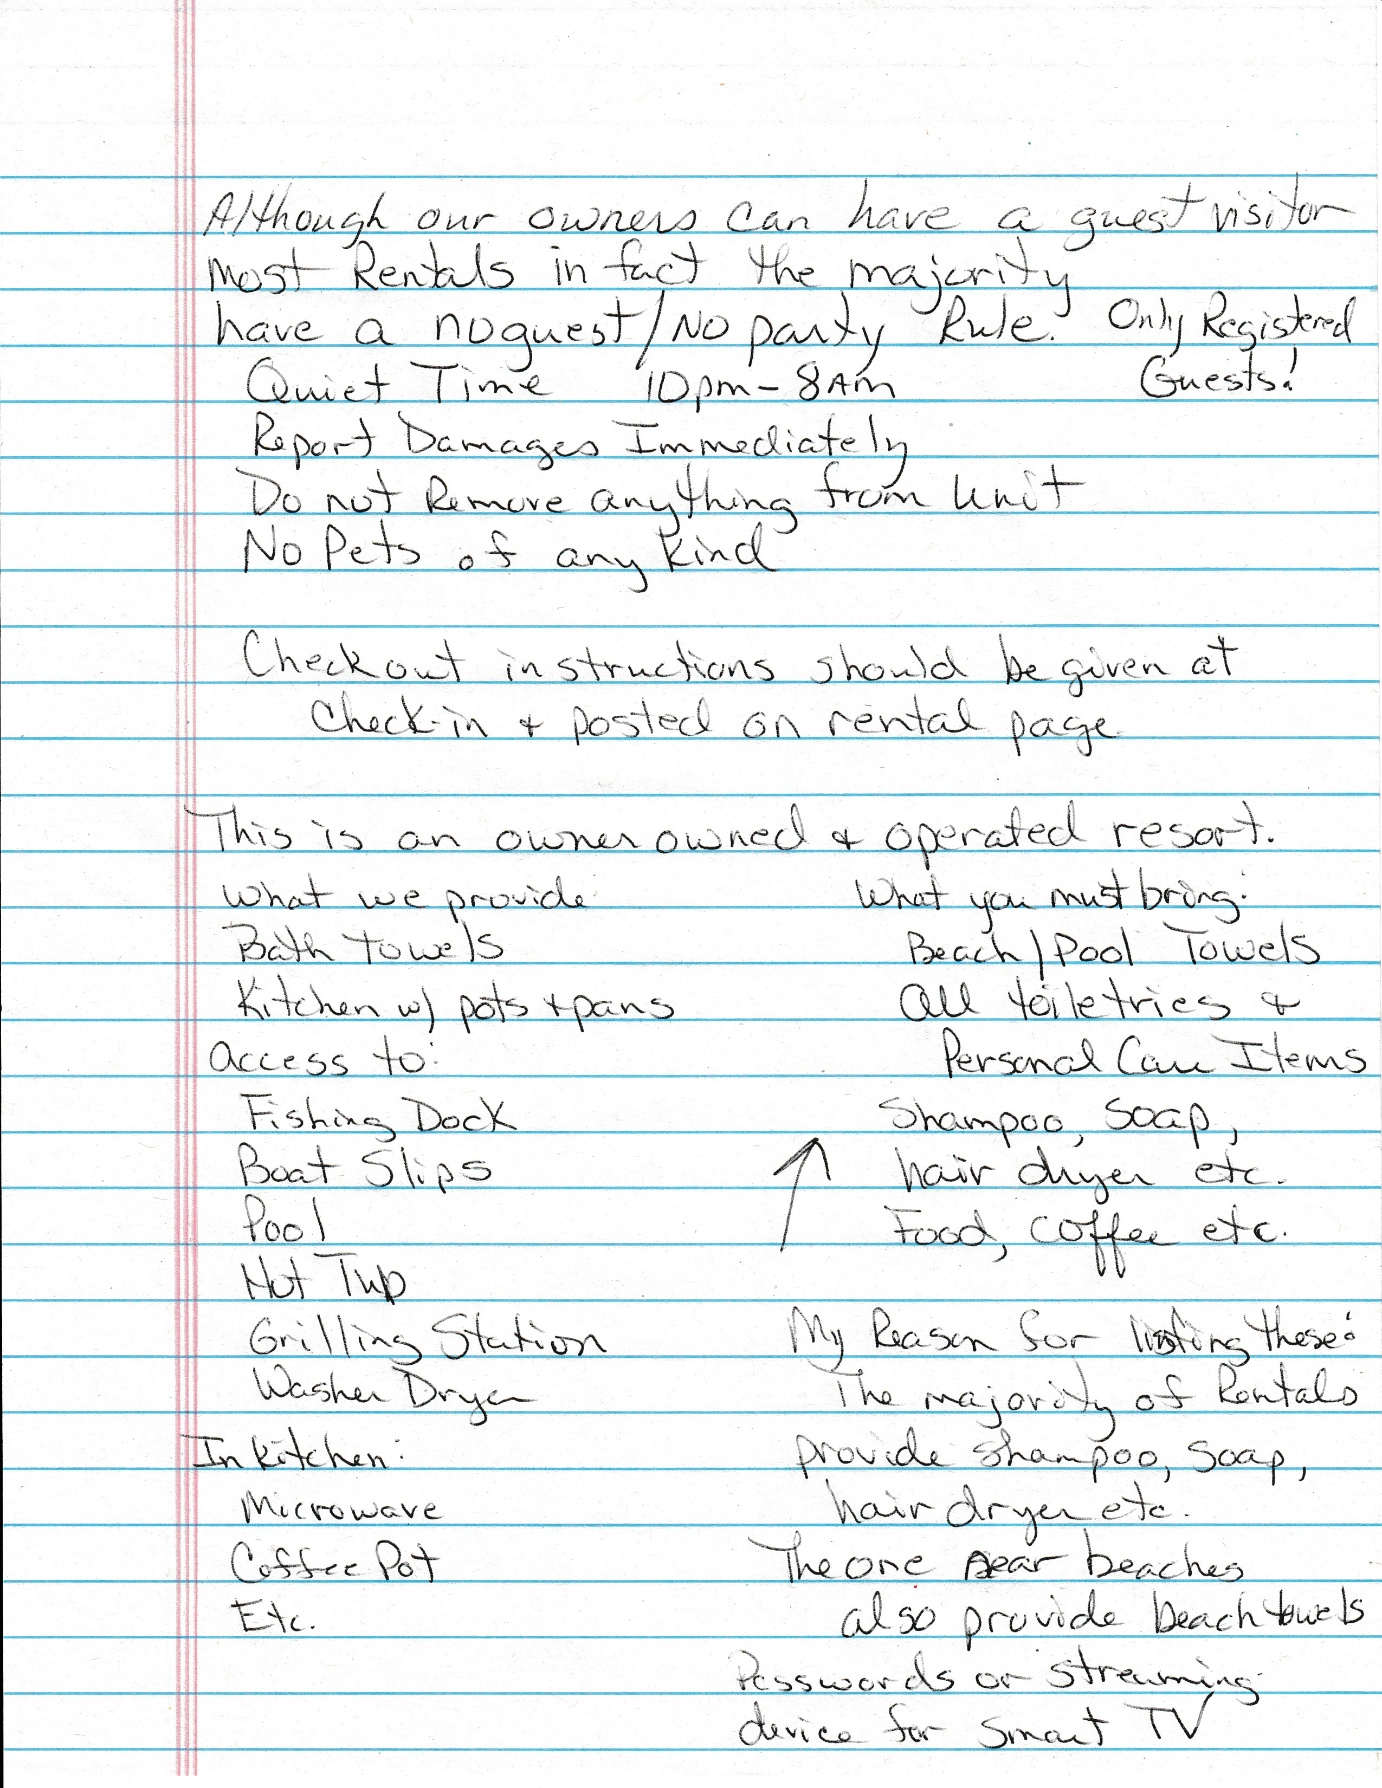 Although our owners can have a guest visitor
most Rentals in fact the majority
have a no guest/No party Rule. Only Registered
Guests!
Quiet Time 10pm - 8AM
Report Damages Immediately
Do not Remove anything from Unit
No Pets of any Kind
Check out instructions should be given at
Check-in + posted on rental page
This is an owner owned + operated resort.
What we provide
Bath towels
Kitchen w/ pots + pans
access to:
Fishing Dock
Boat Slips
Pool
Hot Tub
Grilling Station
Washer Dryer
In kitchen:
Microwave
Coffee Pot
Etc.
What you must bring:
Beach/Pool Towels
all toiletries +
Personal Care Items
Shampoo, Soap,
hair dryer etc.
Food, coffee etc.
My Reason for listing these:
The majority of Rentals
provide shampoo, soap,
hair dryer etc.
The one near beaches
also provide beach towels
Passwords or streaming
device for Smart TV